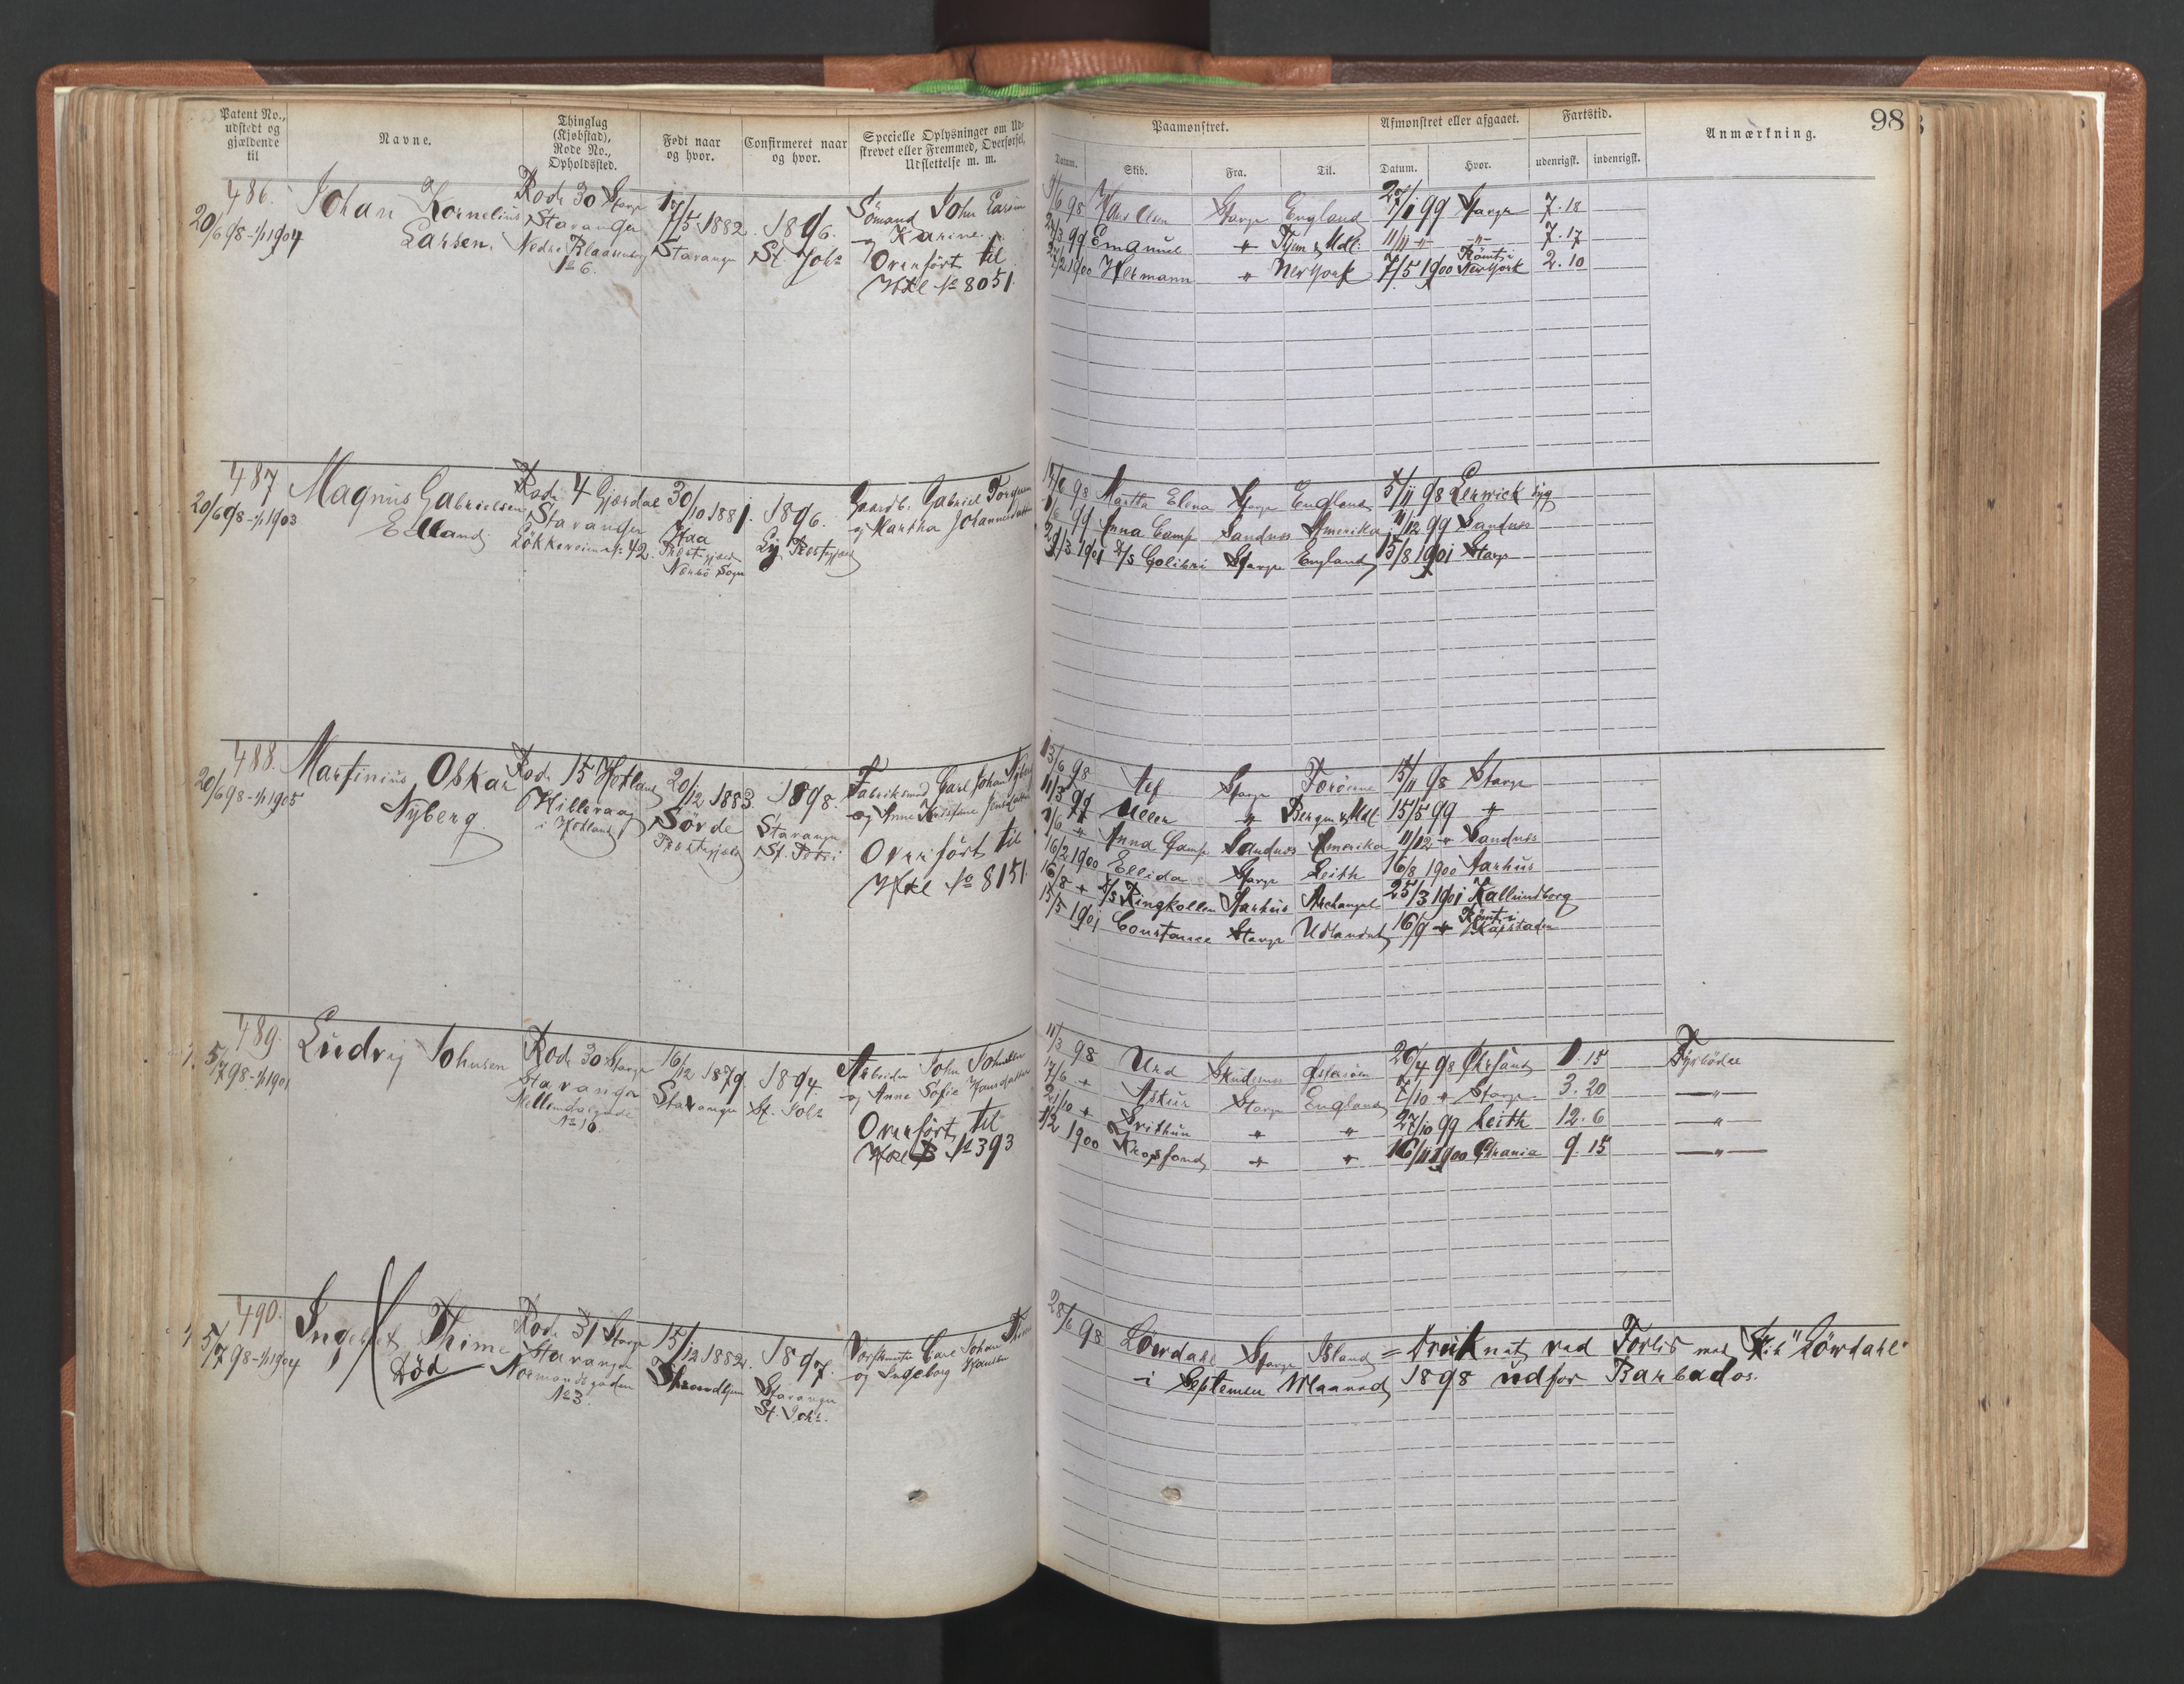 98
Patent No., udstedt og gjældende til
Navne.
Thinglag (Kjøbstad), Rode No., Opholdssted.
Født naar og hvor.
Confirmeret naar og hvor.
Specielle Oplysninger om Udskrevet eller Fremmed, Overførsel, Udslettelse m. m.
Paamønstret.
Afmønstret eller afgaaet.
Fartstid.
Anmærkning.
Datum. Skib. Fra. Til. Datum. Hvor. udenrigsk. indenrigsk.
486.
20/6 98 - 1/1 1904
Johan Kornelius
Larsen.
Rode 30 Stavgr
Stavanger
Nedre Blaasenborg
No 6.
17/5 1882.
Stavanger
1896.
St. Johs
Sömand John Larsen
og Karine.
Overfört til
Hdl No 8051.
9/6 98 Stavgr England 27/1 99 Stavgr 7.18
24/3 99 Emanuel " Tyne & Mdl: 11/11 " -"- 7.17
27/2 1900 Hermann " New York 7/5 1900 Römt i New York 2.10
487
20/6 98 - 1/1 1903
Magnus Gabrielsen
Edland
Rode 4 Gjesdal
Stavanger
Lökkeveien No 42.
30/10 1881.
Haa
Præstegjæld
Nærbö Sogn
1896.
Ly Præstegjæld
Gaardb. Gabriel
og Martha Johannesdatter
17/6 98 Martha Elena Stavgr England 5/11 98 Lerwick syg
1/6 99 Anna Camp Sandnes Amerika 11/12 99 Sandnes
21/3 1901 D/S Colibri Stavgr England 15/8 1901 Stavgr
488.
20/6 98 - 1/1 1905
Martinius Oskar
Nyberg
Rode 15 Hetland
Hilleraag
i Hetland
20/12 1883.
Sörde
Præstegjæld
1898.
Stavanger
St. Petri
Fabriksmd Carl Johan Nyberg
og Anne
Overfört til
Hdl No 8151.
13/6 98 Alf Stavgr Toröerne 15/11 98 Stavgr
11/3 99 Ellen " Bergen & Mdl 15/5 99 "
1/6 " Anna Camp Sandnes Amerika 11/12 " Sandnes
16/2 1900 Ellida Stavgr Leith 16/8 1900 Aarhus
16/8 " D/S Ringkollen Aarhus Archangel 25/3 1901 Kallundborg
15/5 1901 Constance Stavgr Udlandet 16/9 " Römt i Kapstaden
489.
5/7 98 - 1/1 1901
Ludvig Johnsen
Rode 30 Stavgr
Stavanger
No 16.
16/12 1879.
Stavanger
1894.
St. Johs
Arbeider John Johnsen
og Anne Sofie Hansdatter
Overfört til
Hdl B No 393
11/3 98 Urd Skudesnes Östersöen 26/4 98 Chrsand 1.15 Fyrböder
17/6 " Askur Stavgr England 7/10 " Stavgr 3.20 -"-
21/10 " Svithun " " 27/10 99 Leith 12.6 -"-
1/2 1900 Kropfond " " 16/11 1900 Chrania 9.15 -"-
490.
5/7 98 - 1/1 1904
Thime
Död
Rode 31 Stavgr
Stavanger
Normandsgaden
No 3.
15/12 1882.
Throndhjem
1897.
Stavanger
St. Johs.
Carl Johan Thime
og Ingeborg Hansen
28/6 98 Lövdahl Stavgr Island = Druknet ved Forlis med Skib "Lövdahl"
i September Maaned 1898 udfor Barbados.